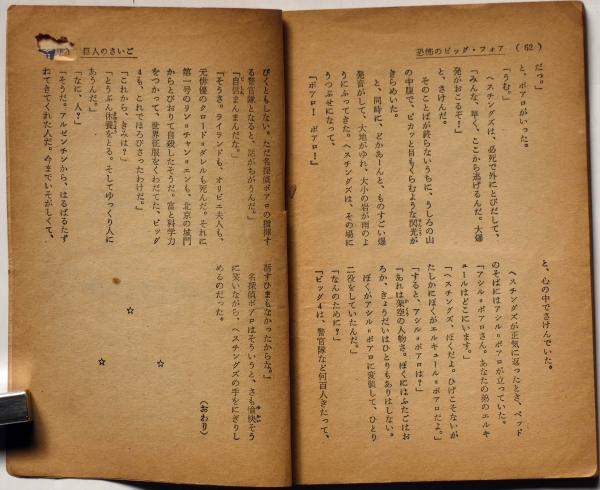 恐怖のビッグ・フォア (62)
だっ。」
と、ポアロがいった。
「うむ。」
ヘスチングズは、必死で外にとびだして、
「みんな、早く、ここから逃げるんだ。大爆
発がおこるぞ!」
と、さけんだ。
そのことばが終らないうちに、うしろの山
の中腹で、ピカッと目もくらむような閃光が
きらめいた。
と、同時に、どかあーんと、ものすごい爆
発音がして、大地がゆれ、大小の岩が雨のよ
うにふってきた。ヘスチングズは、その場に
うつぶせになって、
「ポアロ! ポアロ!」
と、心の中でさけんでいた。
ヘスチングズが正気に返ったとき、ベッド
のそばにはアシル=ポアロが立っていた。
「アシル=ポアロさん。あなたの弟のエルキ
ュールはどこにいます。」
「ヘスチングズ、ぼくだよ。ひげこそないが
たしかにぼくがエルキュール=ポアロだよ。」
「すると、アシル=ポアロは?」
「あれは架空の人物さ。ぼくにはふたごはお
ろか、きょうだいはひとりもありはしない。
ぼくがアシル=ポアロに変装して、ひとり
二役をしていたんだ。」
「なんのために?」
「ビッグ4は、警官隊など何百人きたって、
巨人のさいご
びくともしない。ただ名探偵ポアロの指揮す
る警官隊となると、話がちがうんだ。」
「自信まんまんだな。」
「そうさ。ライランドも、オリビエ夫人も、
元俳優のクロード=ダレルも死んだ。それに
第一号のリン=チャン=エンも、北京の城門
からとびおりて自殺したそうだ。富と科学力
をつかって、世界征服をくわだてた、ビッグ
4も、これでほろびさったわけだ。」
「これから、きみは?」
「とうぶん休養をとる。そしてゆっくり人に
あうんだ。」
「なに、人?」
「そうだ。アルゼンチンから、はるばるたず
ねてきてくれた人だ。今までいそがしくて、
話すひまもなかったからな。」
名探偵ポアロはそういうと、さも愉快そう
に笑いながら、ヘスチングズの手をにぎりし
めるのだった。
(おわり)